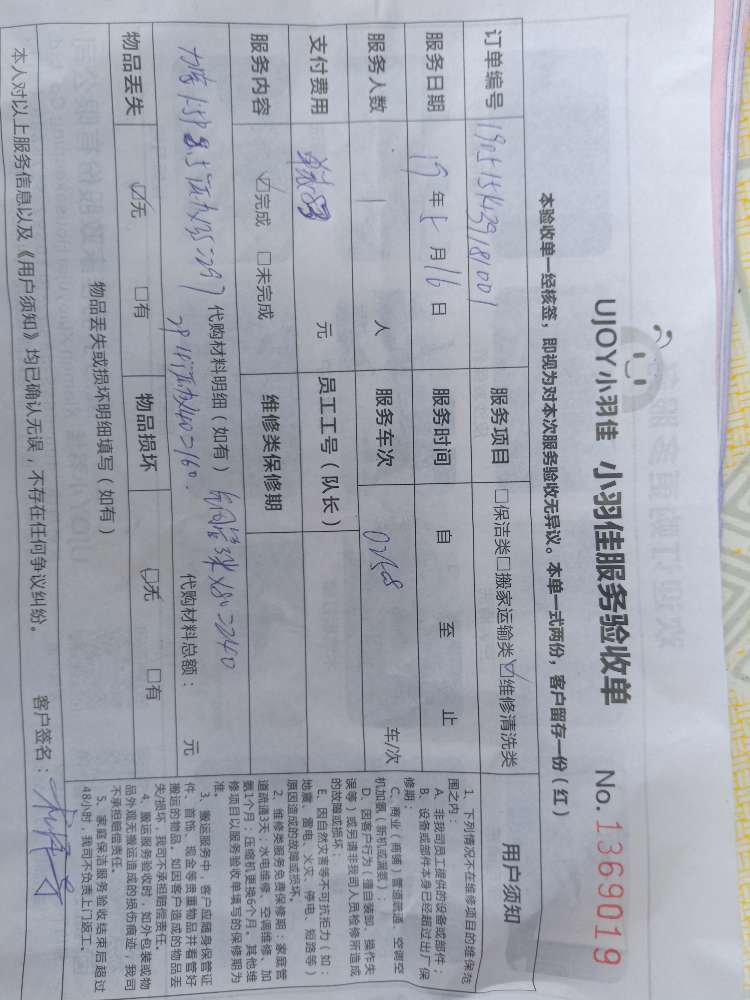 UJOY小羽佳 小羽佳服务验收单 No. 1369019
本验收单一经核签，即视为对本次服务验收无异议。本单一式两份，客户留存一份（红）
订单编号 服务项目 □保洁类□搬家运输类☑维修清洗类
服务日期 19年5月16日 服务时间 自 至 止
服务人数 1 人 服务车次 车/次
支付费用 元 员工工号（队长）
服务内容 ☑完成 □未完成 维修类保修期
代购材料明细（如有）
代购材料总额： 元
物品丢失 ☑无 □有 物品损坏 ☑无 □有
物品丢失或损坏明细填写（如有）
本人对以上服务信息以及《用户须知》均已确认无误，不存在任何争议纠纷。
客户签名：
用户须知
1、下列情况不在维修项目的维保范
围之内：
A、非我司员工提供的设备或部件；
B、设备或部件本身已经超过出厂保
修期；
C、商业（商铺）管道疏通、空调空
机加氟（新机或漏氟）；
D、因客户行为（擅自装卸、操作失
误等）或另请非我司人员检修所造成
的故障或损坏；
E、因自然灾害等不可抗拒力（如：
地震、雷电、火灾、停电、短路等）
原因造成的故障或损坏。
2、维修类服务免费保修期：家庭管
道疏通3天；水电维修、空调维修、加
氟1个月；压缩机更换6个月。其他维
修项目以服务验收单填写的保修期为
准。
3、搬运服务中，客户应随身保管证
件、首饰、现金等贵重物品并看管好
搬运的物品，如因客户造成的物品丢
失/损坏，我司不承担赔偿责任。
4、搬运服务验收时，如外包装或物
品外观无搬运造成的损伤痕迹，我司
不承担赔偿责任。
5、家庭保洁服务验收结束后超过
48小时，我司不负责上门返工。